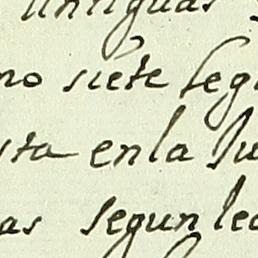 antiguas
no siete leg
sta enla su
as segun lec